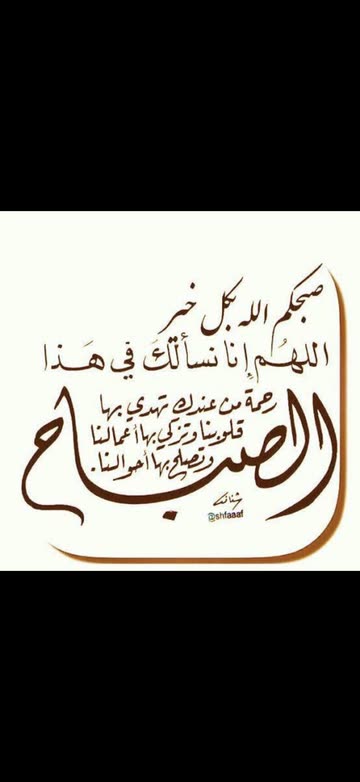 صبحكم الله بكل خير
اللهُم إنا نسألكَ في هَذا
الصباح
رحمة من عندك تهدي بها
قلوبنا وتزكي بها أعمالنا
وتصلح بها أحوالنا.
@shfaaaf